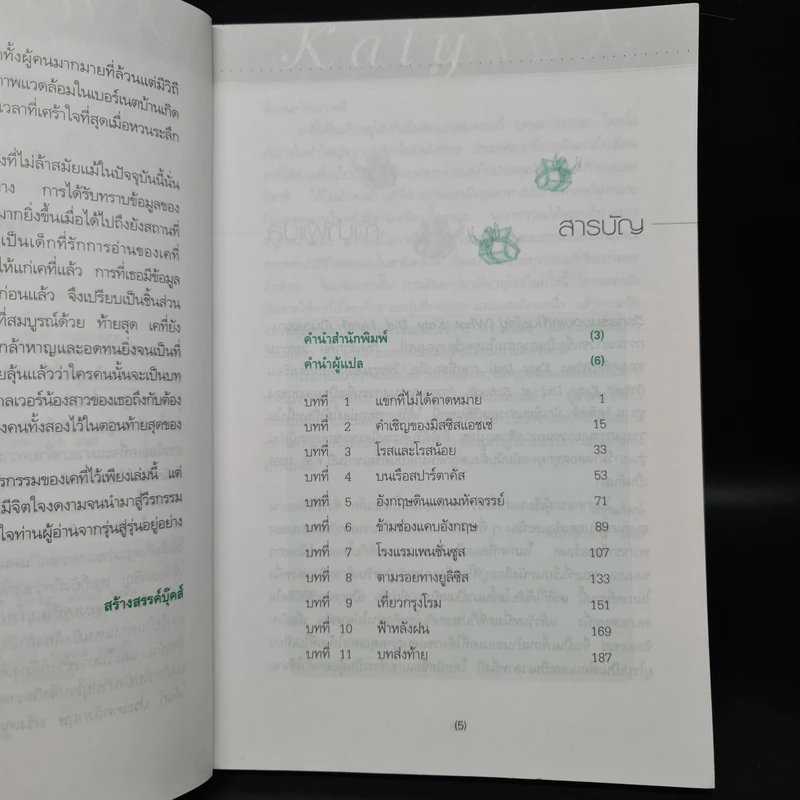 ทั้งผู้คนมากมายที่ล้วนแต่มีวิถี
ภาพแวดล้อมในเบอร์เนตบ้านเกิด
เวลาที่เศร้าใจที่สุดเมื่อหวนระลึก
ที่ไม่ล้าสมัยแม้ในปัจจุบันนี้นั่น
การได้รับทราบข้อมูลของ
มากยิ่งขึ้นเมื่อได้ไปถึงยังสถานที่
เป็นเด็กที่รักการอ่านของเคที่
ให้แก่เคที่แล้ว การที่เธอมีข้อมูล
ก่อนแล้ว จึงเปรียบเป็นชิ้นส่วน
ที่สมบูรณ์ด้วย ท้ายสุด เคที่ยัง
กล้าหาญและอดทนยิ่งจนเป็นที่
ลุ้นแล้วว่าใครคนนั้นจะเป็นบท
น้องสาวของเธอถึงกับต้อง
คนทั้งสองไว้ในตอนท้ายสุดของ
กรรมของเคที่ไว้เพียงเล่มนี้ แต่
มีจิตใจงดงามจนนำมาสู่วีรกรรม
ใจท่านผู้อ่านจากรุ่นสู่รุ่นอยู่อย่าง
สร้างสรรค์บุ๊คส์
Katy
สารบัญ
คำนำสำนักพิมพ์ (3)
คำนำผู้แปล (6)
บทที่ 1 แขกที่ไม่ได้คาดหมาย 1
บทที่ 2 คำเชิญของมิสซิสแอชเช่ 15
บทที่ 3 โรสและโรสน้อย 33
บทที่ 4 บนเรือสปาร์ตาคัส 53
บทที่ 5 อังกฤษดินแดนมหัศจรรย์ 71
บทที่ 6 ข้ามช่องแคบอังกฤษ 89
บทที่ 7 โรงแรมเพนชั่นซูส 107
บทที่ 8 ตามรอยทางยูลิซิส 133
บทที่ 9 เที่ยวกรุงโรม 151
บทที่ 10 ฟ้าหลังฝน 169
บทที่ 11 บทส่งท้าย 187
(5)